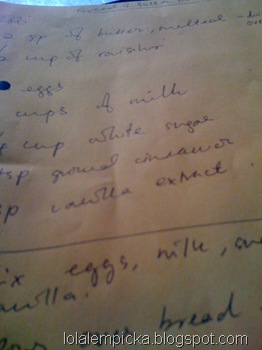 sp of butter, melted -
cup of raisins
eggs
cups of milk
cup white sugar
tsp ground cinnamon
sp vanilla extract.
ix eggs, milk, su
anilla.
bread
lolalempicka.blogspot.com